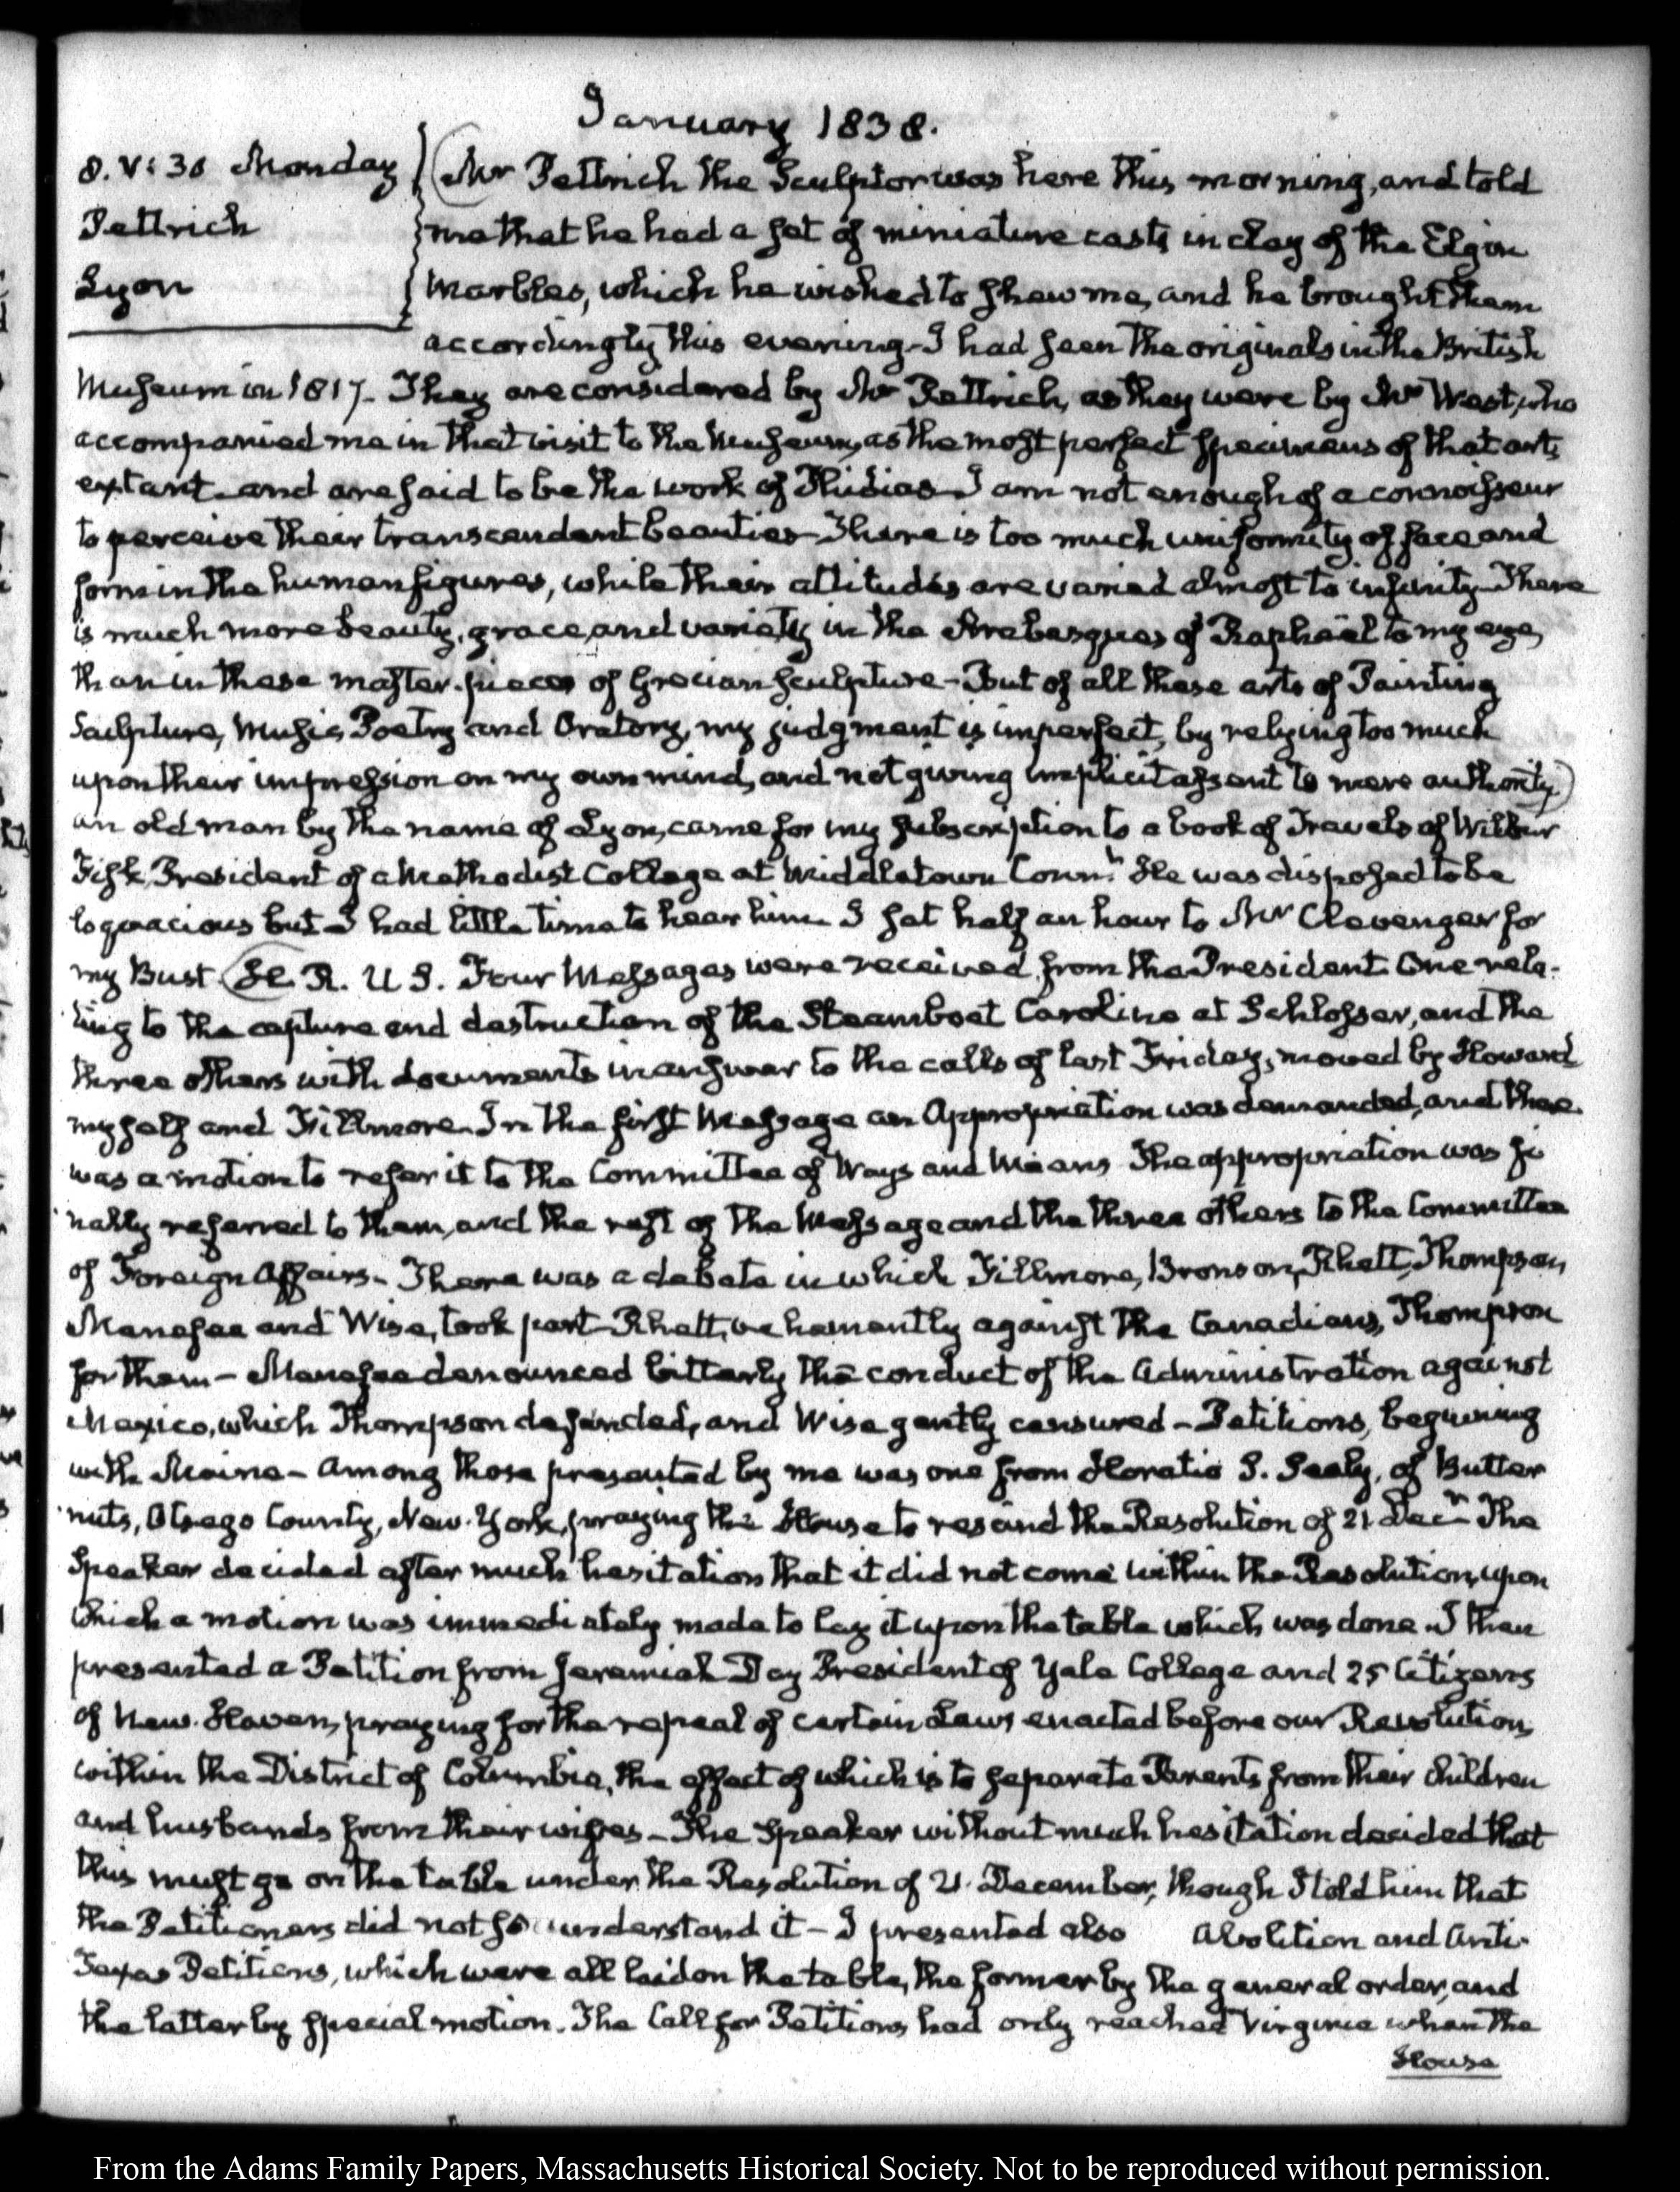 January 1838.
8. V: 30 Monday
Pettrich
Lyon
Mr Pettrich the Sculptor was here this morning, and told
me that he had a set of miniature casts in clay of the Elgin
Marbles, which he wished to shew me, and he brought them
accordingly this evening. I had seen the originals in the British
Museum in 1817. They are considered by Mr Pettrich, as they were by Mr West, who
accompanied me in that visit to the Museum, as the most perfect specimens of that art,
extant and are said to be the work of Phidias. I am not enough of a connoisseur
to perceive their transcendent beauties. There is too much uniformity of face and
form in the human figures, while their attitudes are varied almost to infinity. There
is much more beauty, grace, and variety in the Arebasques of Raphael to my eye,
than in these master-pieces of Grecian Sculpture - But of all these arts of Painting
Sculpture, Music, Poetry and Oratory, my judgment is imperfect, by relying too much
upon their impression on my own mind, and not giving implicit assent to mere authority)
an old man by the name of Lyon, came for my subscription to a book of Travels of Wilbur
Fisk, President of a Methodist College at Middletown Connt. He was disposed to be
loquacious but I had little time to hear him. I sat half an hour to Mr Clevenger for
my Bust (H. R. U S. Four Messages were received from the President. One rela-
ting to the capture and destruction of the Steamboat Caroline at Schlosser, and the
three others with documents in answer to the calls of last Friday, moved by Howard
myself and Fillmore. In the first Message an Appropriation was demanded, and there
was a motion to refer it to the Committee of Ways and Means. The appropriation was fi
nally referred to them, and the rest of the Message and the three others to the Committee
of Foreign Affairs - There was a debate in which Fillmore, Bronson, Rhett, Thompson,
Menefee and Wise, took part - Rhett, vehemently against the Canadians, Thompson
for them - Menefee denounced bitterly the conduct of the Administration against
Mexico, which Thompson defended, and Wise gently censured - Petitions, beginning
with Maine - Among those presented by me was one from Horatio S. Sealy, of Butter
nuts, Otsego County, New-York, praying the House to rescind the Resolution of 21 Decr. The
Speaker decided after much hesitation that it did not come within the Resolution, upon
which a motion was immediately made to lay it upon the table which was done. I then
presented a Petition from Jeremiah Day President of Yale College and 25 Citizens
of New-Haven, praying for the repeal of certain Laws enacted before our Revolution,
within the District of Columbia, the effect of which is to separate Parents from their children
and husbands from their wives - The Speaker without much hesitation decided that
this must go on the table under the Resolution of 21. December, though I told him that
the Petitioners did not so understand it - I presented also Abolition and Anti-
Texas Petitions, which were all laid on the table, the former by the general order, and
the latter by special motion. The Call for Petitions had only reached Virginia when the
House
From the Adams Family Papers, Massachusetts Historical Society. Not to be reproduced without permission.